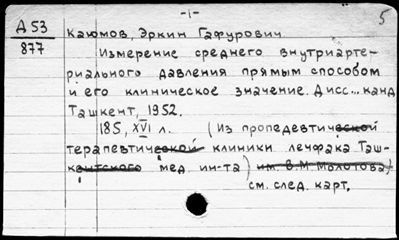 -1-
5
Д 53
877
Каюмов, Эркин Гафурович
Измерение среднего внутриарте-
риального давления прямым способом
и его клиническое значение. Дисс... канд
Ташкент, 1952.
185, XVI л. (Из пропедевтической
терапевтической клиники лечфака Таш-
кентского мед ин-та) им. В.М Молотова)
см. след. карт.